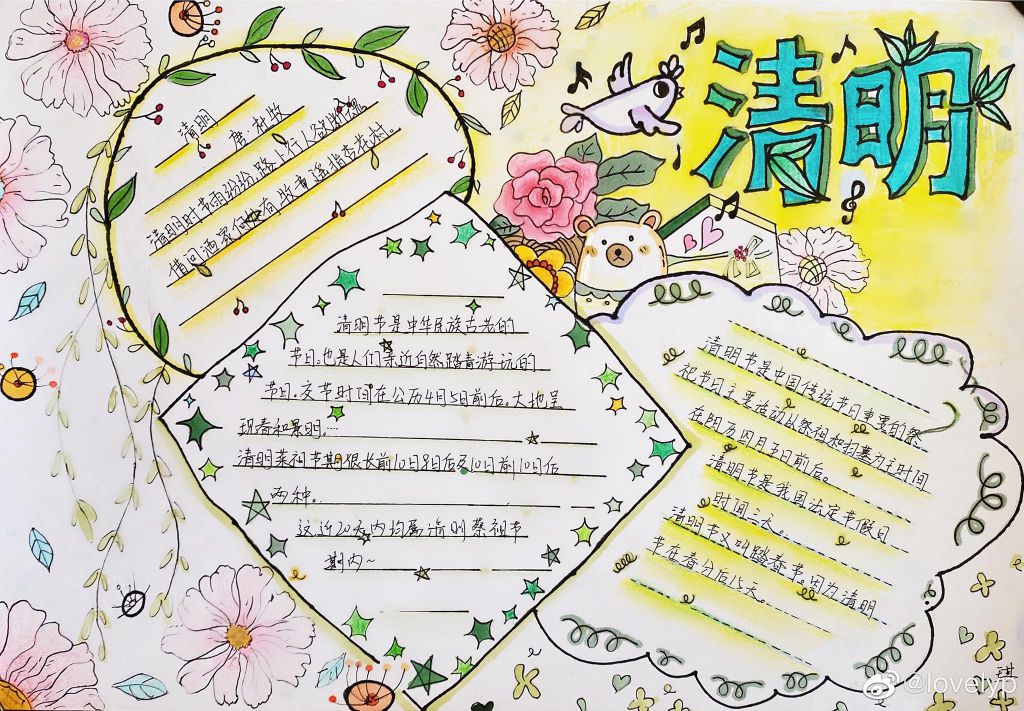 清明
清明
唐 杜牧
清明时节雨纷纷,路上行人欲断魂
借问酒家何处有牧童遥指杏花村。
清明节是中华民族古老的
节日。也是人们亲近自然踏青游玩的
节日。交节时间在公历4月5日前后。大地呈
现春和景明。…
清明祭祖节期很长前10日8日后及10日前10日后
两种。
这近20天内均属清明祭祖节
期内~
清明节是中国传统节日重要的祭
祀节日主要活动从祭祖和扫墓为主时间
在阳历四月五日前后。
清明节是我国法定节假日
时间三天。
清明节又叫踏春节。因为清明
节在春分后15天。
淇
@lovelyp